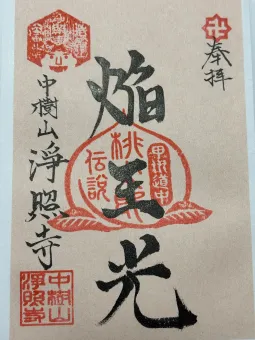 奉拝
焔王光
甲州道中
桃
伝説
中樹山
淨照寺
中樹山
淨照寺